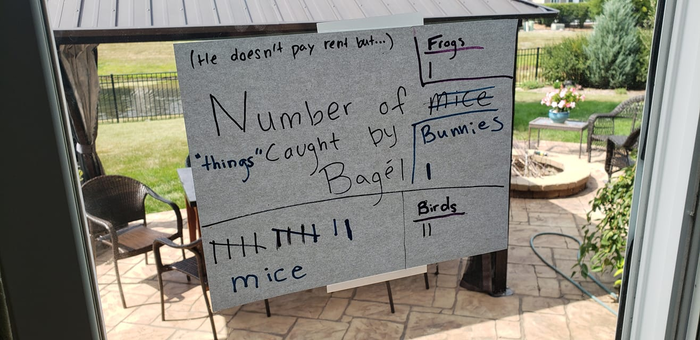 (He doesn't pay rent but...)
Number of mice
"things" Caught by
Bagél
Frogs
|
Bunnies
|
Birds
||
mice